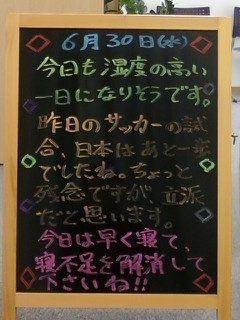 6月30日(水)
今日も湿度の高い
一日になりそうです。
昨日のサッカーの試
合、日本はあと一歩
でしたね。ちょっと
残念ですが、立派
だと思います。
今日は早く寝て、
寝不足を解消して
下さいね!!